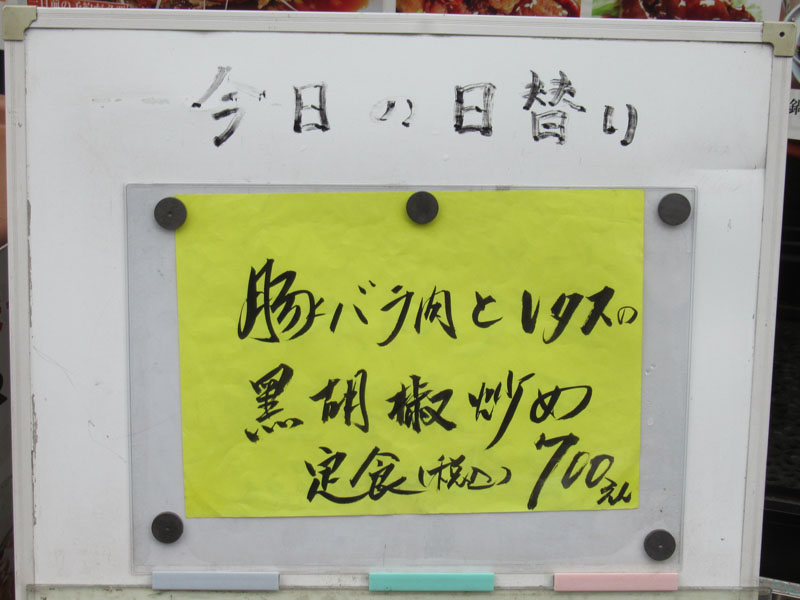 今日の日替り
豚バラ肉とレタスの
黒胡椒炒め
定食(税込)700えん
鍋